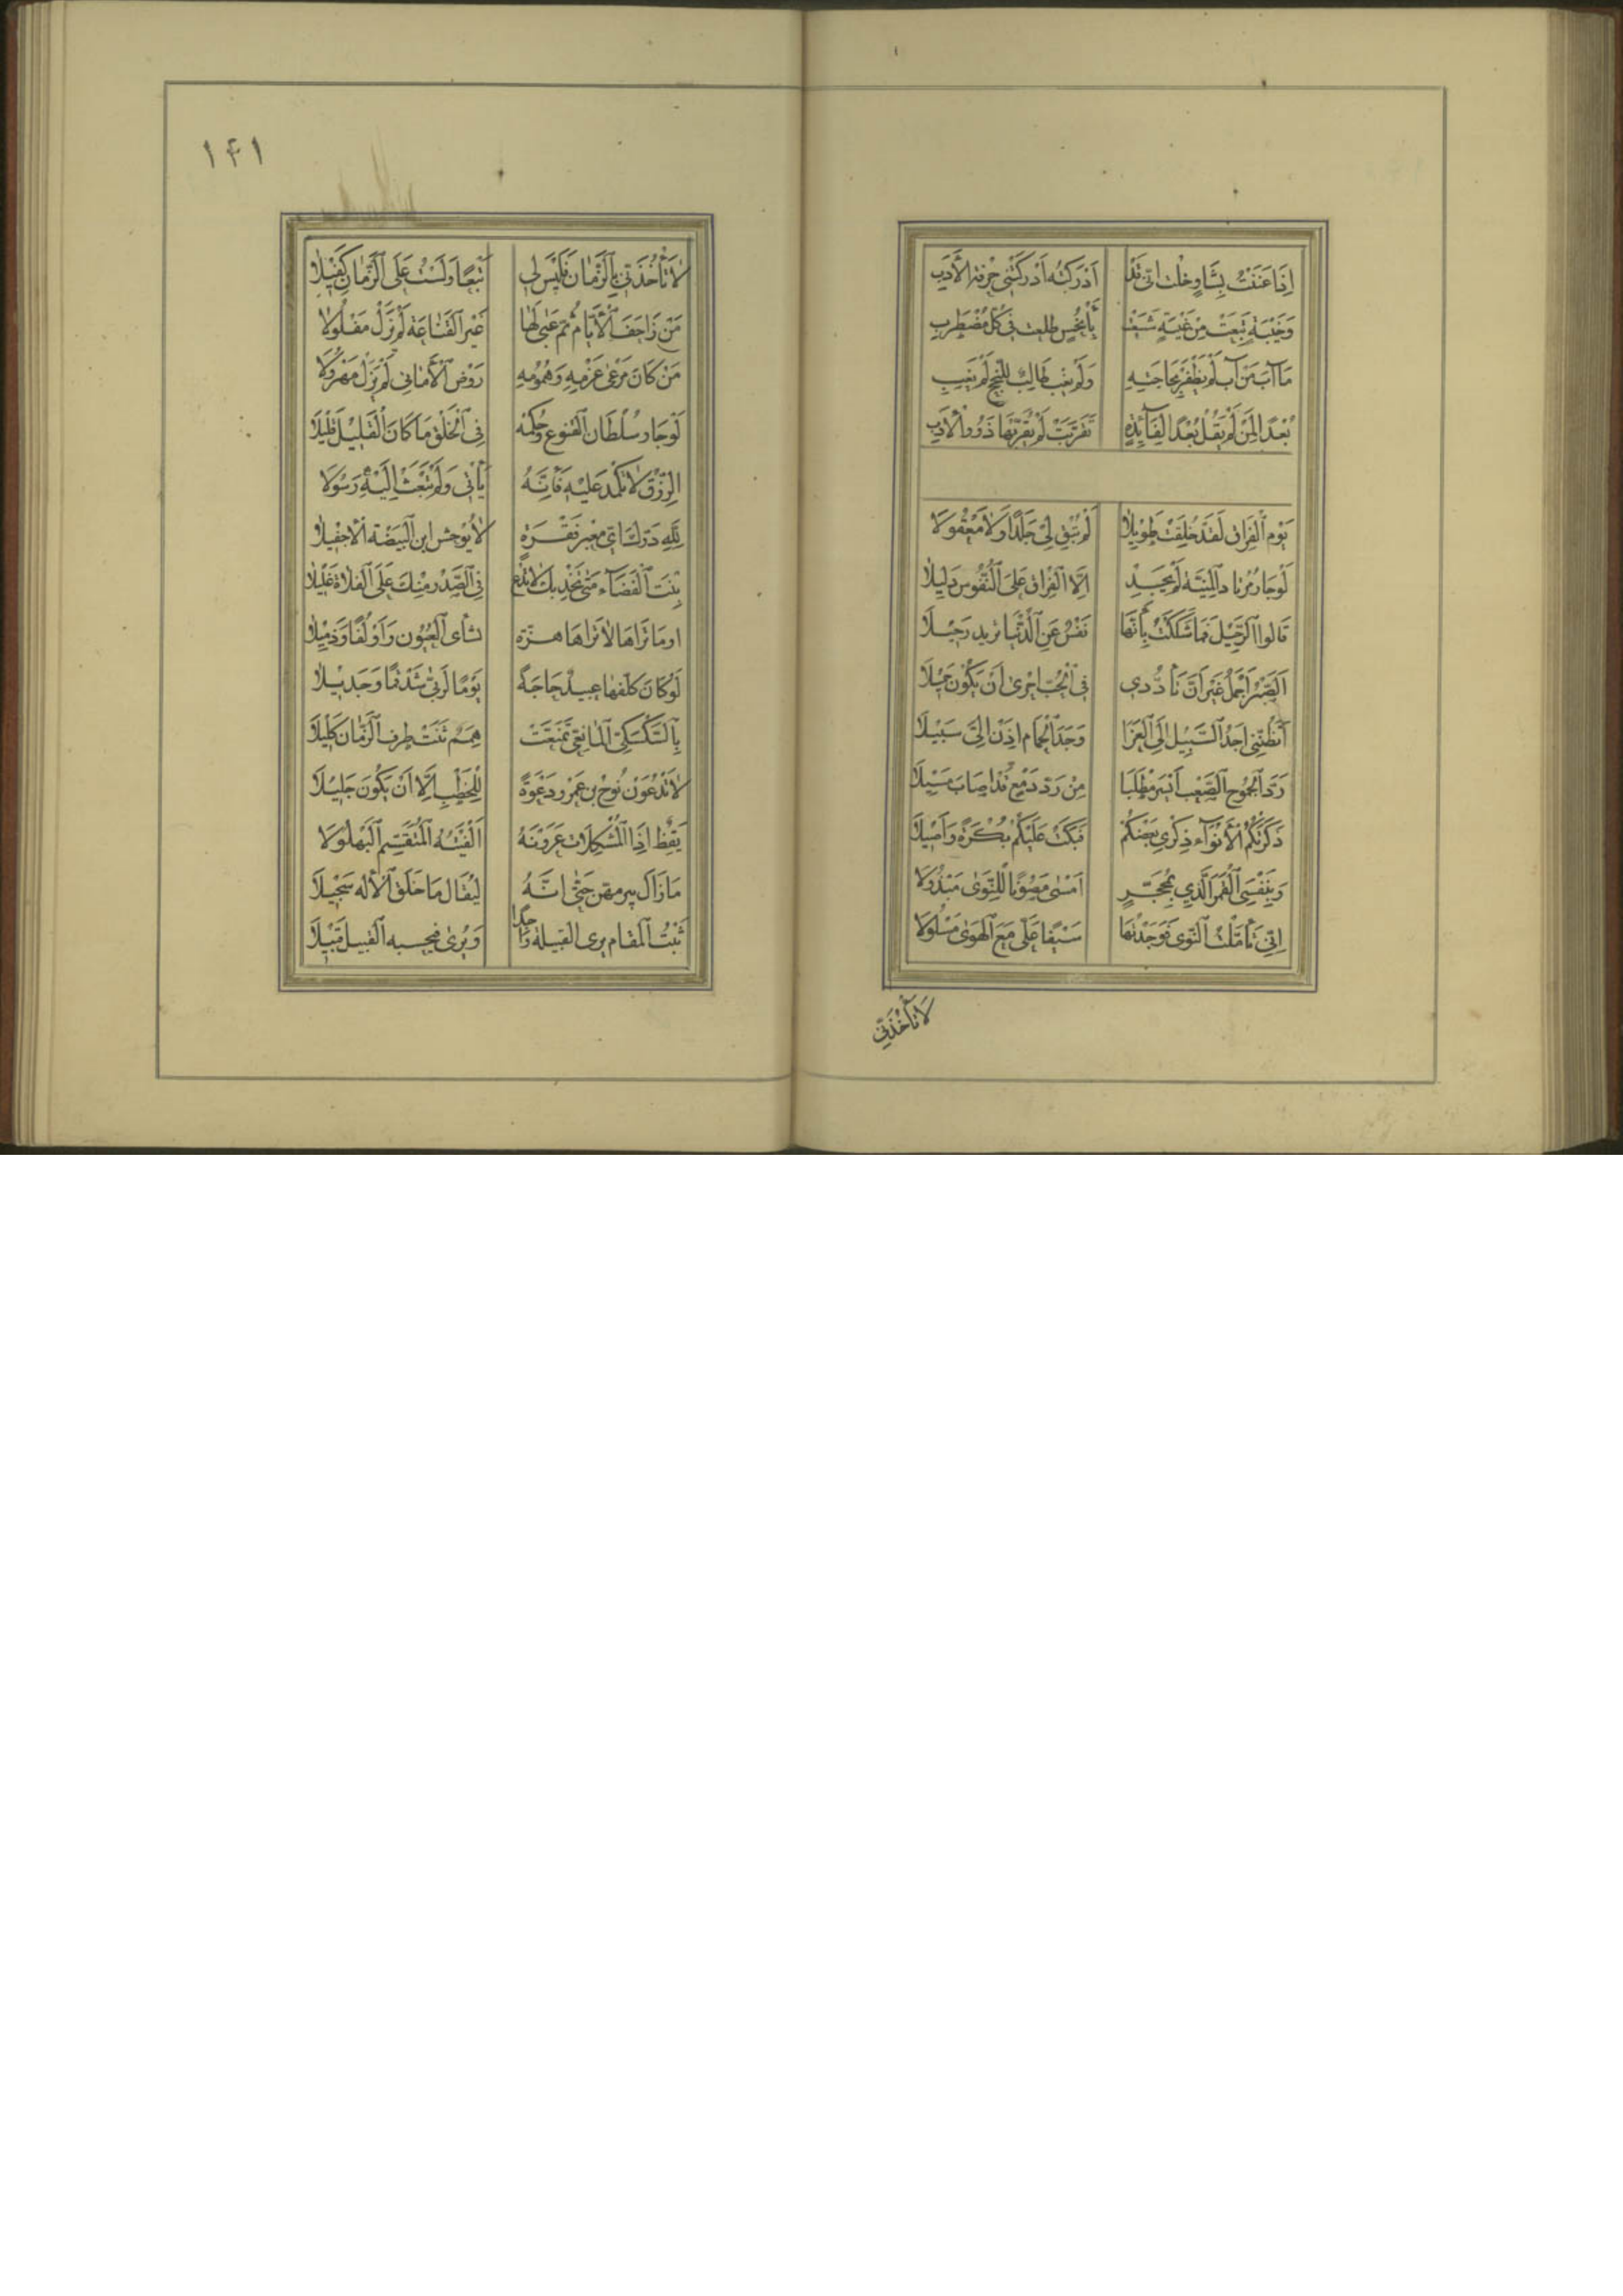 إِذَا عَنَنْتُ بِشَاوٍ خِلْتُ انّى قَدْ اَدْرَكْتُهُ اَدْرَكَتْنِي حِرْفَةُ الْأَدَبِ
وَخَيْبَةٍ نَبَعَتْ مِنْ غَيْبَةٍ شَسَعَتْ بِأَنْحُسٍ طلعت فِي كُلِّ مُضْطَرِبِ
مَا آبَ مَنْ آبَ لَمْ يَظْفَرْ بِحَاجَتِهِ وَلَمْ يَغِبْ طَالِبٌ لِلنُّجْحِ لَمْ يَخِبِ
يَوْم الْفِرَاقِ لَقَدْ خُلِقْتَ طَوِيلًا لَمْ تُبْقِ لِي جَلَدًا وَلَا مَعْقُولَا
لَوْ جَارَ مُرْتَادُ الْمَنِيَّةِ لَمْ يَجِدْ اِلَّا الْفِرَاقَ عَلَى النُّفُوسِ دَلِيلَا
قَالُوا الرَّحِيلَ فَمَا شَكَكْتُ بِأَنَّهَا نَفْسِي عَنِ الدُّنْيَا تريد رَحِيلَا
اَلصَّبْرُ اَجْمَلُ غَيْرَ اَنَّ تَلَدُّدِي فِي الْحُبِّ احْرَى اَنْ يَكُونَ جَمِيلَا
اَتَظُنُّنِي اَجِدُ السَّبِيلَ اِلَى الْعَزَا وَجَدَ الْحِمَام اِذَنْ اِلَيَّ سَبِيلَا
رَدُّ الْجَمُوحِ الصَّعْبِ اَيْسَرُ مَطْلَبَا مِنْ رَدِّ دَمْعٍ قَدْ اصَابَ مَسِيلَا
ذَكَرَتْكُمُ الْأَنْوَاءُ ذِكْرِي بَعْضَكُمْ فَبَكَتْ عَلَيْكُمْ بُكْرَةً وَاَصِيلَا
وَبِنَفْسِيَ الْقَمَرُ الَّذِي بِمُحَجَّرٍ اَمْسَى مَصُونًا لِلنَّوَى مَبْذُولَا
اِنِّي تَأَمَّلْتُ النَّوَى فَوَجَدْتُهَا سَيْفًا عَلَيَّ مَعَ الْهَوَى مَسْلُولَا
لَا تَأْخُذَنِّي
١۴١
لَا تَأْخُذَنِّي بِالزَّمَانِ فَلَيْسَ لِي تَبَعًا وَلَسْتُ عَلَى الزَّمَانِ كَفِيلَا
مَنْ زَاحَفَ الْأَيَّامَ ثُمَّ عَبَى لَهَا غَيْرَ الْقَنَاعَةِ لَمْ يَزَلْ مَفْلُولَا
مَنْ كَانَ مَرْعَى عَزْمِهِ وَهُمُومِهِ رَوْضُ الْأَمَانِي لَمْ يَزَلْ مَهْزُولَا
لَوْ جَارَ سُلْطَانُ الْقُنُوعِ وَحُكْمُهُ فِي الْخَلْقِ مَا كَانَ الْقَلِيلُ قَلِيلَا
الرِّزْقُ لَا تَكْمَدْ عَلَيْهِ فَاِنَّهُ يَأْتِي وَلَمْ تَبْعَثْ اِلَيْهِ رَسُولَا
لِلَّهِ دَرُّكَ اي مَعْبَر قَفْرَةٍ لَا يُوحِشُ ابْنَ الْبَيْضَةِ الْاِجْفِيلَا
بِنْتُ الْفَضَاءِ مَتَى تَخْدِ بِكَ لَا تَدَعْ فِي الصَّدْرِ مِنْكَ عَلَى الْفَلَاةِ غَلِيلَا
اومَا تَرَاهَا لَا تَرَاهَا هِزَّة تشأى الْعُيُونَ وَاَوْلَقًا وَذَمِيلَا
لَوْ كَانَ كَلَّفَهَا عبيدٌ حَاجَةً يَوْمًا لَزَنَّى شَدْقَمًا وَجَدِيلَا
بِالسَّكْسَكِيِّ الْمَاتِعِيِّ تَمَتَّعَتْ هِمَمٌ ثَنَتْ طَرْف الزَّمَانِ كَلِيلَا
لَا تَدْعُوَنْ نُوحَ بْن عَمْرٍو دَعْوَةً لِلْخَطْبِ اِلَّا اَنْ يَكُونَ جَلِيلَا
يَقِظٌ اِذَا الْمُشْكِلَاتُ عَرَوْنَهُ اَلْفَيْتَهُ الْمُتَبَسِّمَ الْبُهْلُولَا
مَا زَالَ يبرمهن حَتَّى انَّهُ لَيُقَال مَا خَلَقَ الْأِلَه سَحِيلَا
ثَبْتُ الْمَقَامِ يرى الْقَبِيلَةَ وَاحِدًا وَيُرَى فيحسبه الْقَبِيلُ قَبِيلَا